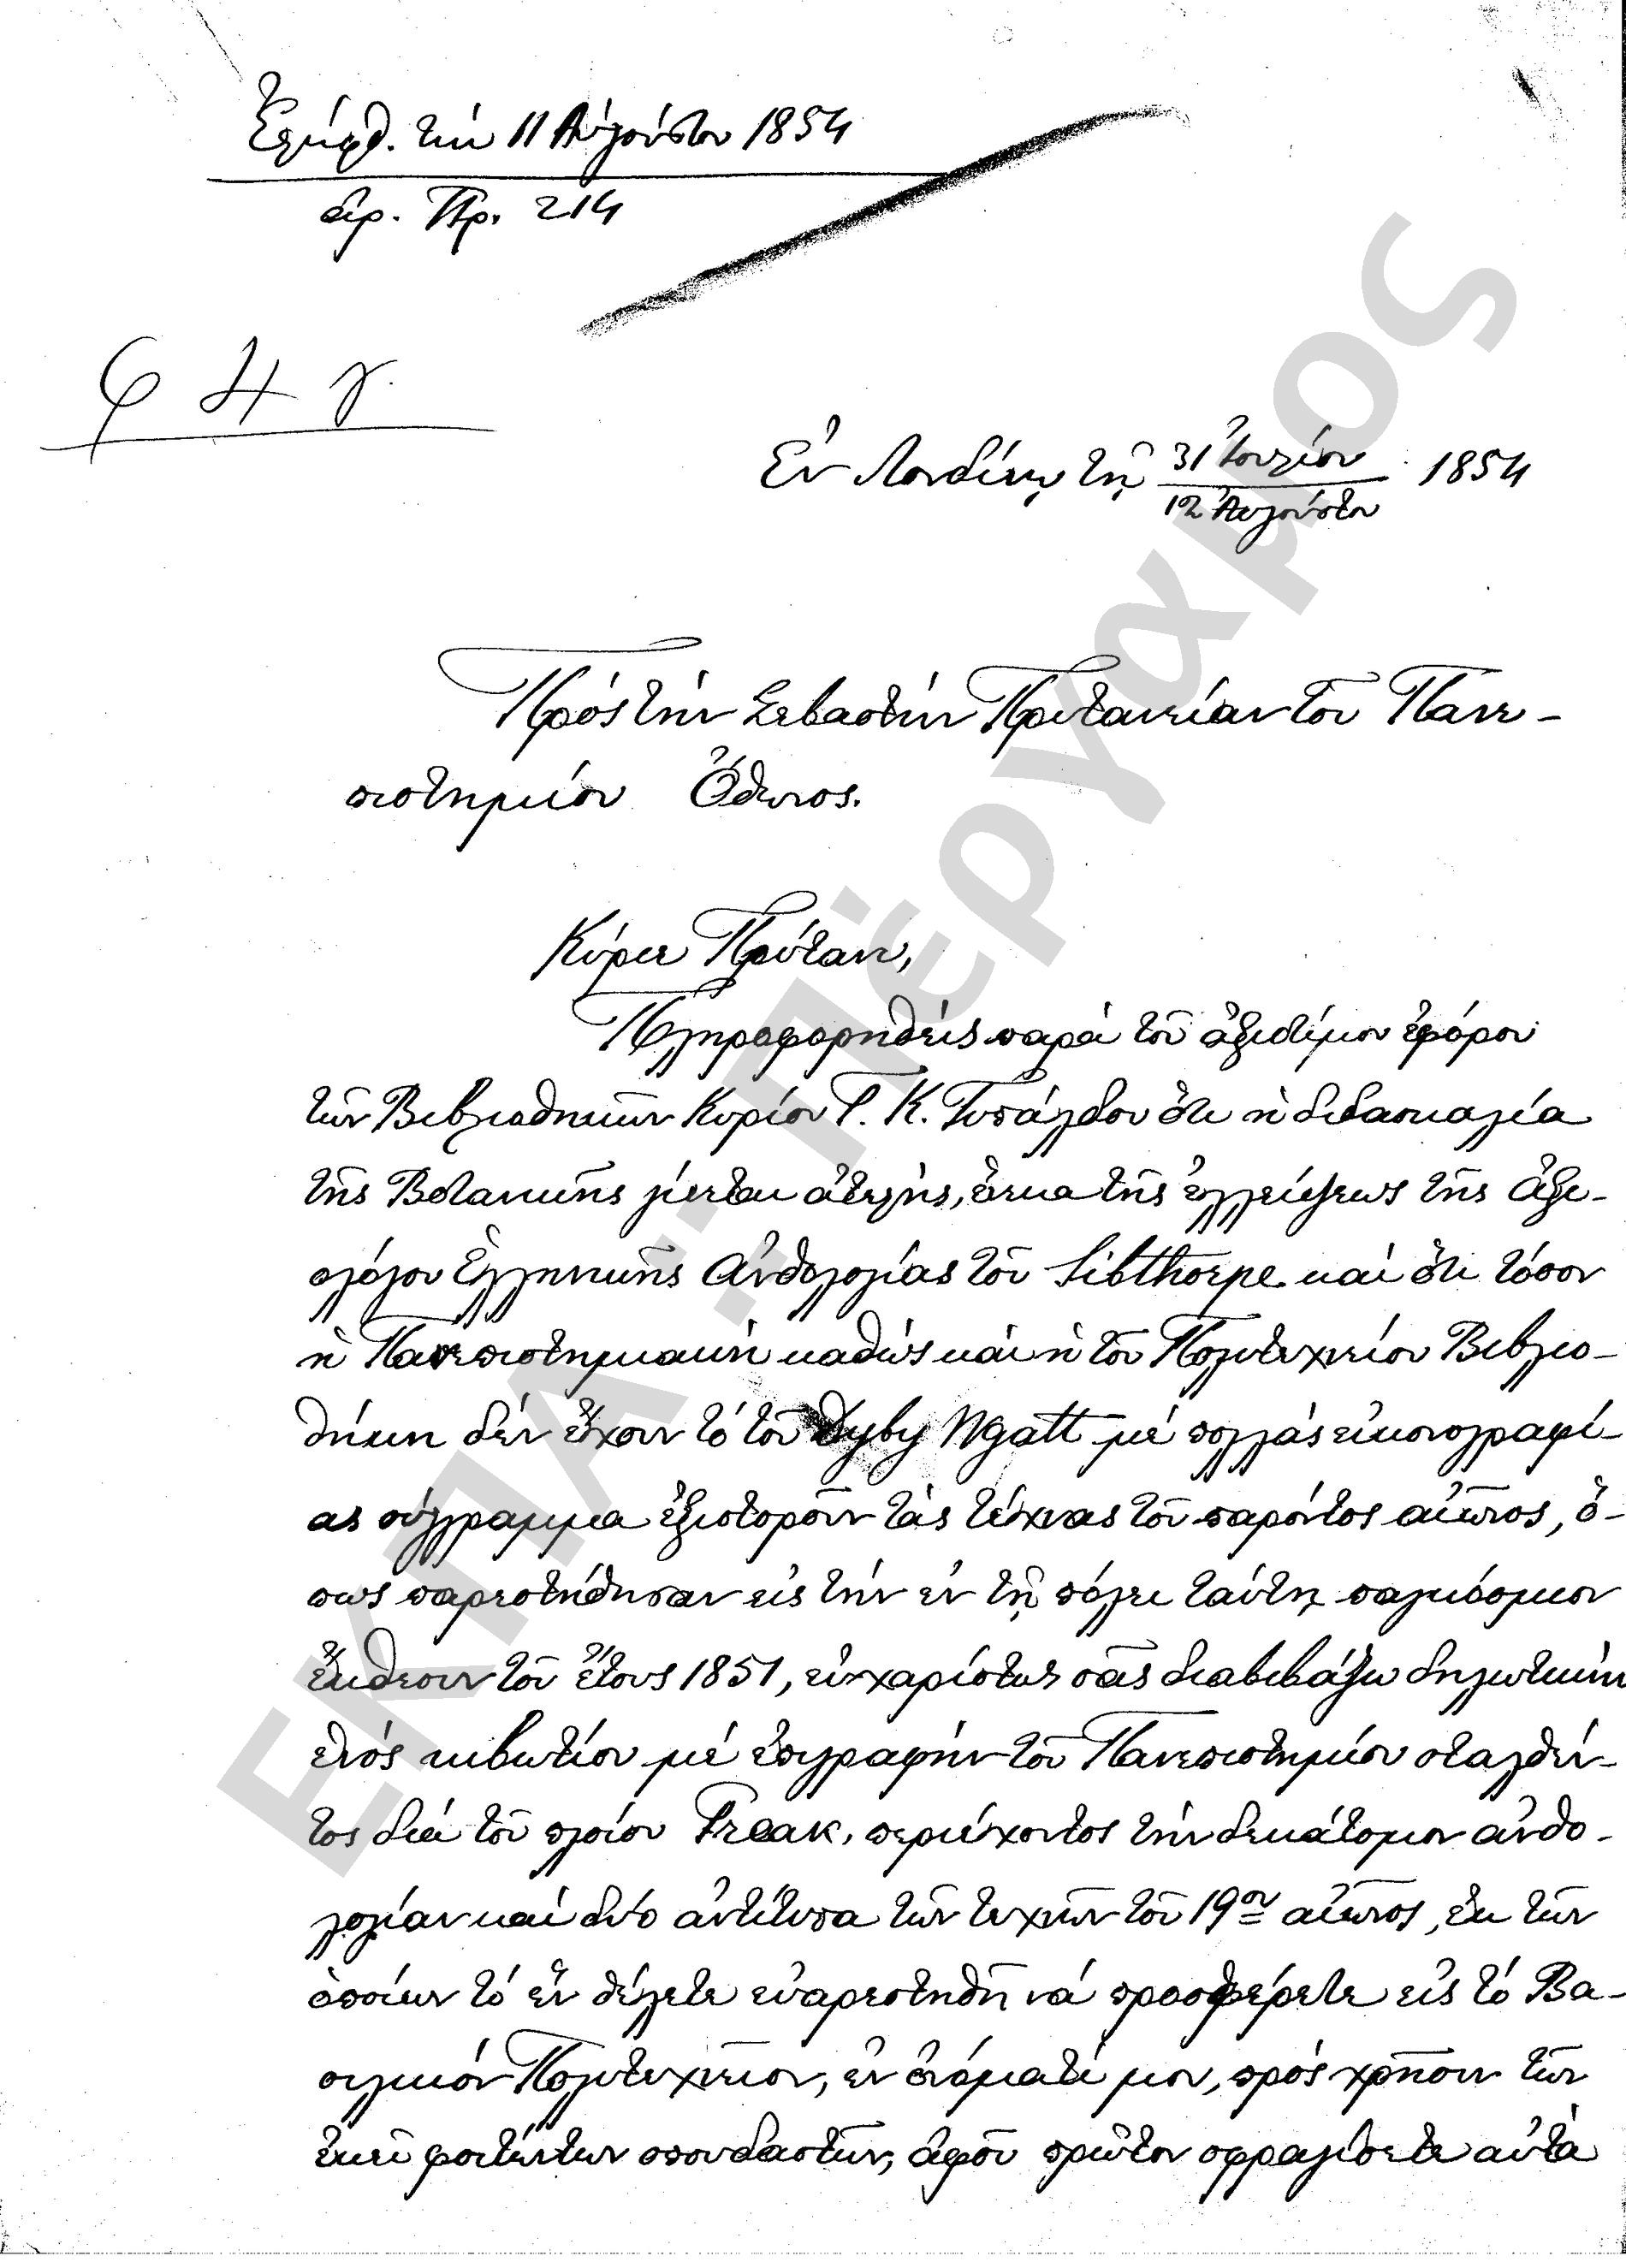 Ἐλήφθ. τὴν 11 Αὐγούστου 1854
ἀρ. Πρ. 214
φ 4 γ.
Ἐν Λονδίνῳ τῇ 31 Ἰουλίου / 12 Αὐγούστου 1854
Πρός τήν Σεβαστήν Πρυτανείαν τοῦ Πανε-
πιστημίου Ὄθωνος.
Κύριε Πρύτανι,
Πληροφορηθείς παρά τοῦ ἀξιοτίμου ἐφόρου
τῶν Βιβλιοθηκῶν Κυρίου Γ. Κ. Τυπάλδου ὅτι ἡ διδασκαλία
τῆς Βοτανικῆς γίνεται ἀτελής, ἕνεκα τῆς ἐλλείψεως τῆς ἀξι-
ολόγου Ἑλληνικῆς Ἀνθολογίας τοῦ Sibthorpe καί ὅτι τόσον
ἡ Πανεπιστημιακή καθώς καί ἡ τοῦ Πολυτεχνείου Βιβλιο-
θήκη δέν ἔχουν τό τοῦ Dyby Wgatt μέ πολλάς εἰκονογραφί-
ας σύγγραμμα ἐξιστοροῦν τάς τέχνας τοῦ παρόντος αἰῶνος, ὅ-
πως παρεστήθησαν εἰς τήν ἐν τῇ πόλει ταύτῃ παγκόσμιον
ἔκθεσιν τοῦ ἔτους 1851, εὐχαρίστως σᾶς διαβιβάζω δηλωτικήν
ἑνός κιβωτίου μέ ἐπιγραφήν τοῦ Πανεπιστημίου σταλθέν-
τος διά τοῦ πλοίου Freak, περιέχοντος τήν δεκάτομον ἀνθο-
λογίαν καί δύο ἀντίτυπα τῶν τεχνῶν τοῦ 19ου αἰῶνος, ἐκ τῶν
ὁποίων τό ἕν θέλετε εὐαρεστηθῆ νά προσφέρετε εἰς τό Βα-
σιλικόν Πολυτεχνεῖον, ἐν ὀνόματί μου, πρός χρῆσιν τῶν
ἐκεῖ φοιτώντων σπουδαστῶν, ἀφοῦ πρῶτον σφραγίσετε αὐτά
ΕΚΠΑ: Πέργαμος